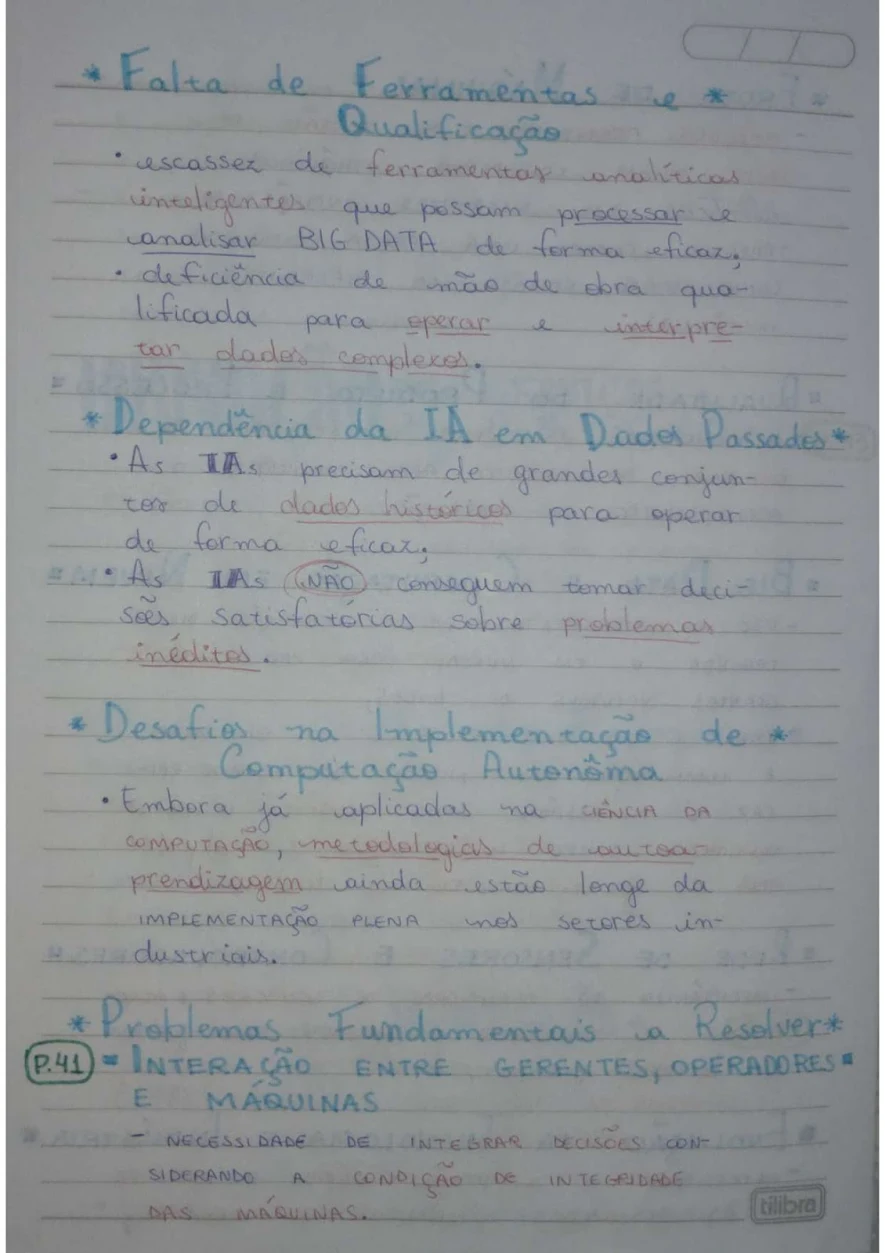 * Falta de Ferramentas e *
Qualificação
• escassez de ferramentas analíticas
inteligentes que possam processar e
analisar BIG DATA de forma eficaz;
• deficiência de mão de obra qua-
lificada para operar e interpre-
tar dados complexos.
* Dependência da IA em Dados Passados *
• As IAs precisam de grandes conjun-
tos de dados históricos para operar
de forma eficaz;
• As IAs NÃO conseguem tomar deci-
sões satisfatórias sobre problemas
inéditos.
* Desafios na Implementação de *
Computação Autonôma
• Embora já aplicadas na CIÊNCIA DA
COMPUTAÇÃO, metodologias de autoa-
prendizagem ainda estão longe da
IMPLEMENTAÇÃO PLENA nos setores in-
dustriais.
* Problemas Fundamentais a Resolver *
P.41 = INTERAÇÃO ENTRE GERENTES, OPERADORES =
E MÁQUINAS
- NECESSIDADE DE INTEGRAR DECISÕES CON-
SIDERANDO A CONDIÇÃO DE INTEGRIDADE
DAS MÁQUINAS.
tilibra